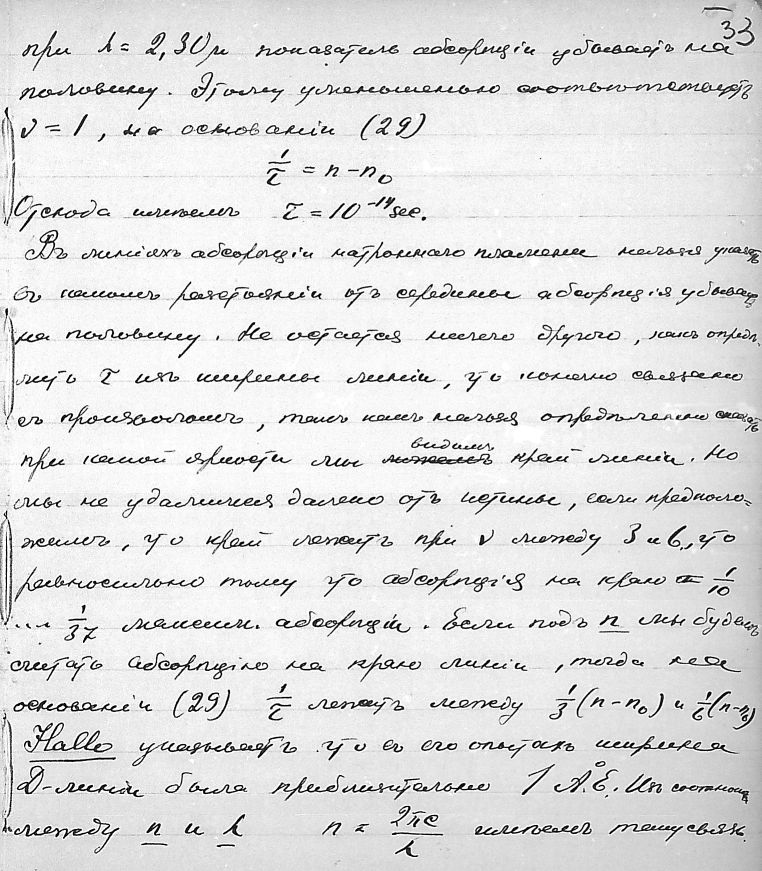 33
при λ = 2,30 μ показатель абсорпціи убываетъ на
половину. Этому уменьшенію соотвѣтствуетъ
ν = 1, на основаніи (29)
1/τ = n − n₀
Отсюда имѣемъ τ = 10⁻¹⁴ sec.
Въ линіяхъ абсорпціи натроннаго пламени нельзя указать
въ какомъ разстояніи отъ середины абсорпція убываетъ
на половину. Не остается ничего другого, какъ опредѣ-
лить τ изъ ширины линіи, что конечно связано
съ произволомъ, такъ какъ нельзя опредѣленно сказать
при какой яркости мы видимъ край линіи. Но
мы не удалимся далеко отъ истины, если предполо=
жимъ, что край лежитъ при ν между 3 и 6, что
равносильно тому что абсорпція на краю = 1/10
... 1/37 максим. абсорпціи. Если подъ n мы будемъ
считать абсорпцію на краю линіи, тогда на
основаніи (29) 1/τ лежитъ между 1/3 (n − n₀) и 1/6 (n − n₀)
Hallo указываетъ что въ его опытахъ ширина
D-линіи была приблизительно 1 Å.E. Изъ соотнош.
между n и λ n = 2πc/λ имѣемъ связь